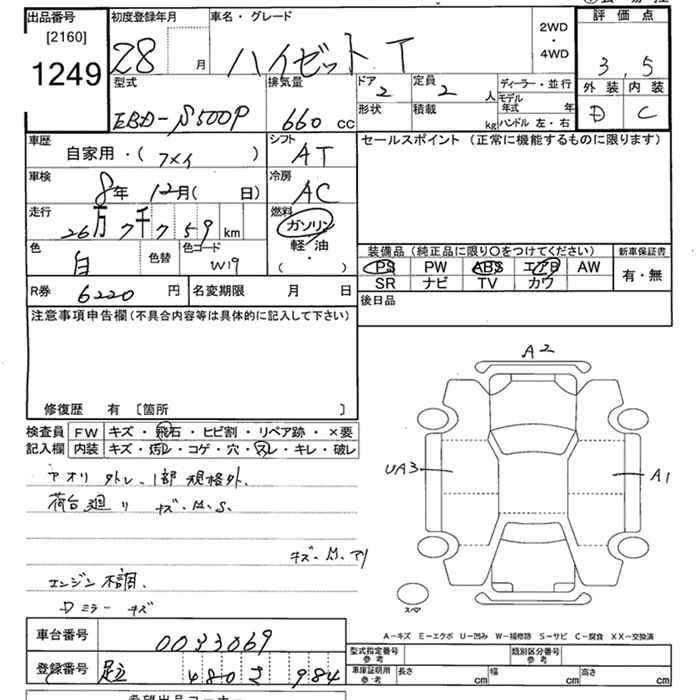 出品番号
[2160]
1249
初度登録年月
28 月
車名・グレード
ハイゼット T
2WD
・
4WD
評価点
3.5
外装 内装
D C
型式
EBD-S500P
排気量
660 cc
ドア
2
定員
2 人
形状
積載
kg
ディーラー・並行
モデル
年式 年
ハンドル 左・右
車歴
自家用・( )
シフト
AT
セールスポイント (正常に機能するものに限ります)
車検
8年 12月( 日)
冷房
AC
走行
26万7千759 km
燃料
ガソリン
軽・油
・
( )
色
白
色替
色コード
W19
装備品 (純正品に限り〇をつけてください)
新車保証書
PS PW ABS エアB AW
SR ナビ TV カワ
有・無
R券 6220 円
名変期限 月 日
後日品
注意事項申告欄(不具合内容等は具体的に記入して下さい)
修復歴 有 [箇所 ]
検査員
記入欄
FW キズ・飛石・ヒビ割・リペア跡・×要
内装 キズ・汚レ・コゲ・穴・スレ・キレ・破レ
アオリ 外レ、1部 規格外.
荷台廻リ キズ.H.S.
キズ.H.アリ
エンジン不調.
Dミラー キズ
A2
UA3
A1
スペア
A-キズ E-エクボ U-凹み W-補修跡 S-サビ C-腐食 XX-交換済
車台番号 0033069
登録番号 足立 480 さ 984
型式指定番号
参考
類別区分番号
参考
車庫証明用
参考
長さ cm 幅 cm 高さ cm
希望出品コーナー